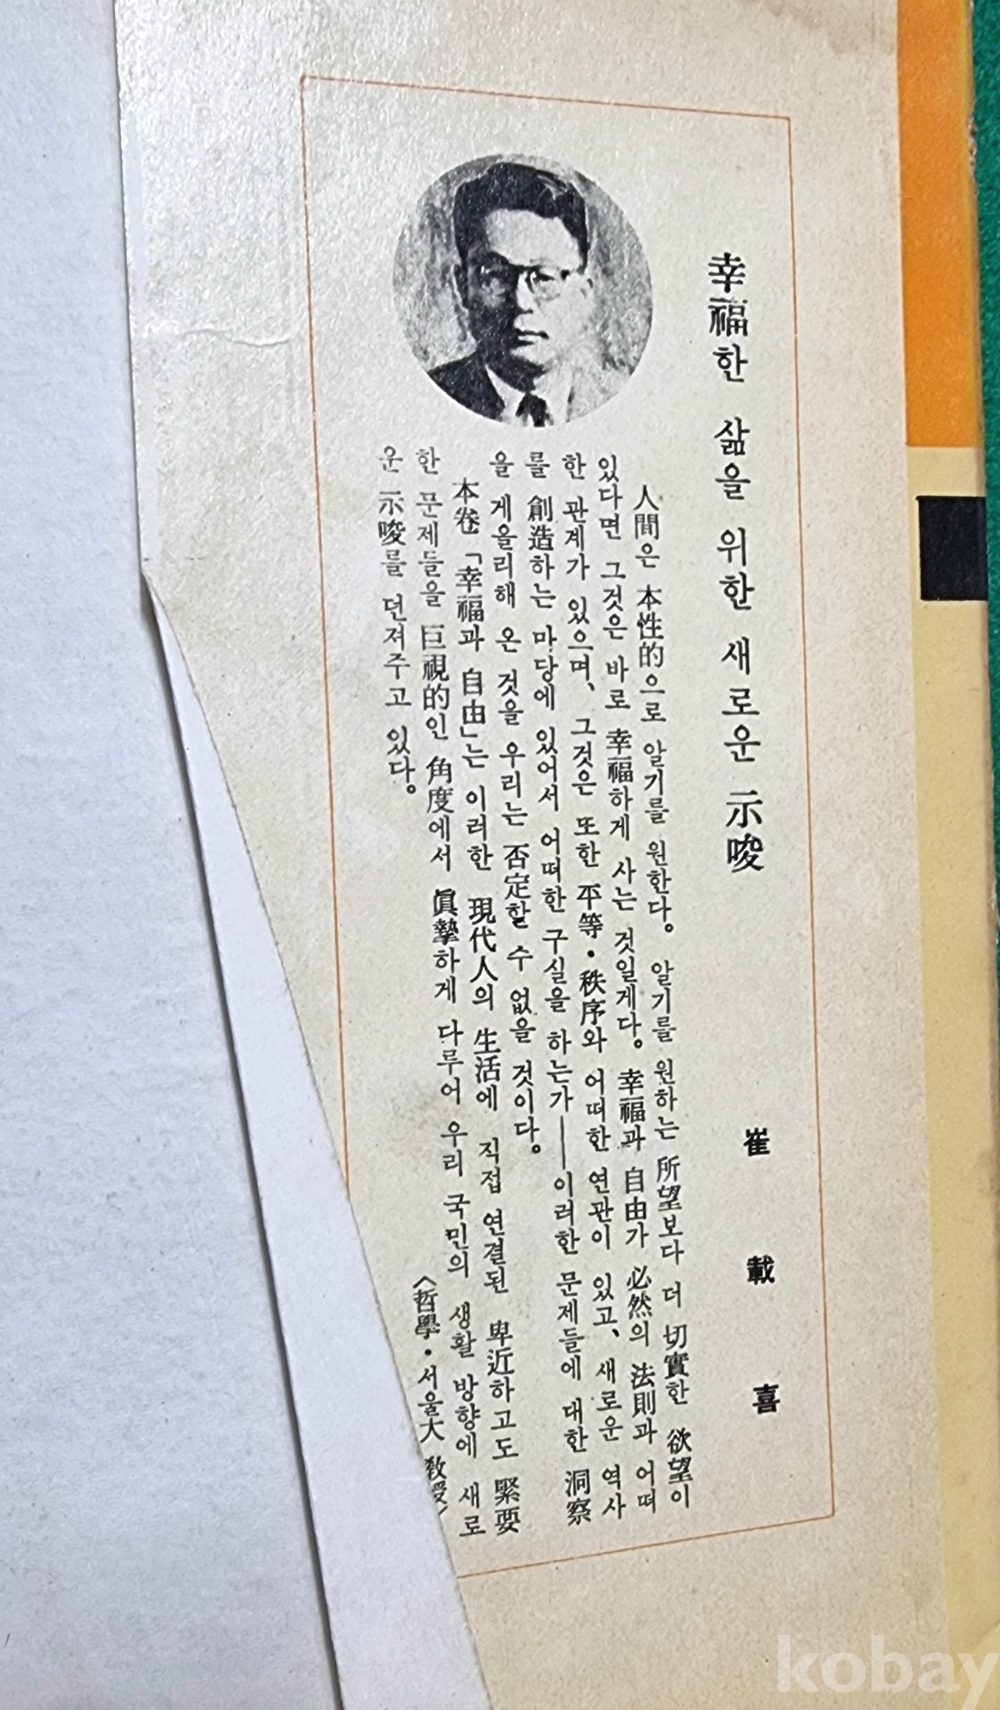 幸福한 삶을 위한 새로운 示唆
崔載喜
人間은 本性的으로 알기를 원한다。 알기를 원하는 所望보다 더 切實한 欲望이
있다면 그것은 바로 幸福하게 사는 것일게다。 幸福과 自由가 必然의 法則과 어떠
한 관계가 있으며、 그것은 또한 平等・秩序와 어떠한 연관이 있고、 새로운 역사
를 創造하는 마당에 있어서 어떠한 구실을 하는가――이러한 문제들에 대한 洞察
을 게을리해 온 것을 우리는 否定할 수 없을 것이다。
本卷「幸福과 自由」는 이러한 現代人의 生活에 직접 연결된 卑近하고도 緊要
한 문제들을 巨視的인 角度에서 眞摯하게 다루어 우리 국민의 생활 방향에 새로
운 示唆를 던져주고 있다。
〈哲學・서울大 敎授〉
kobay